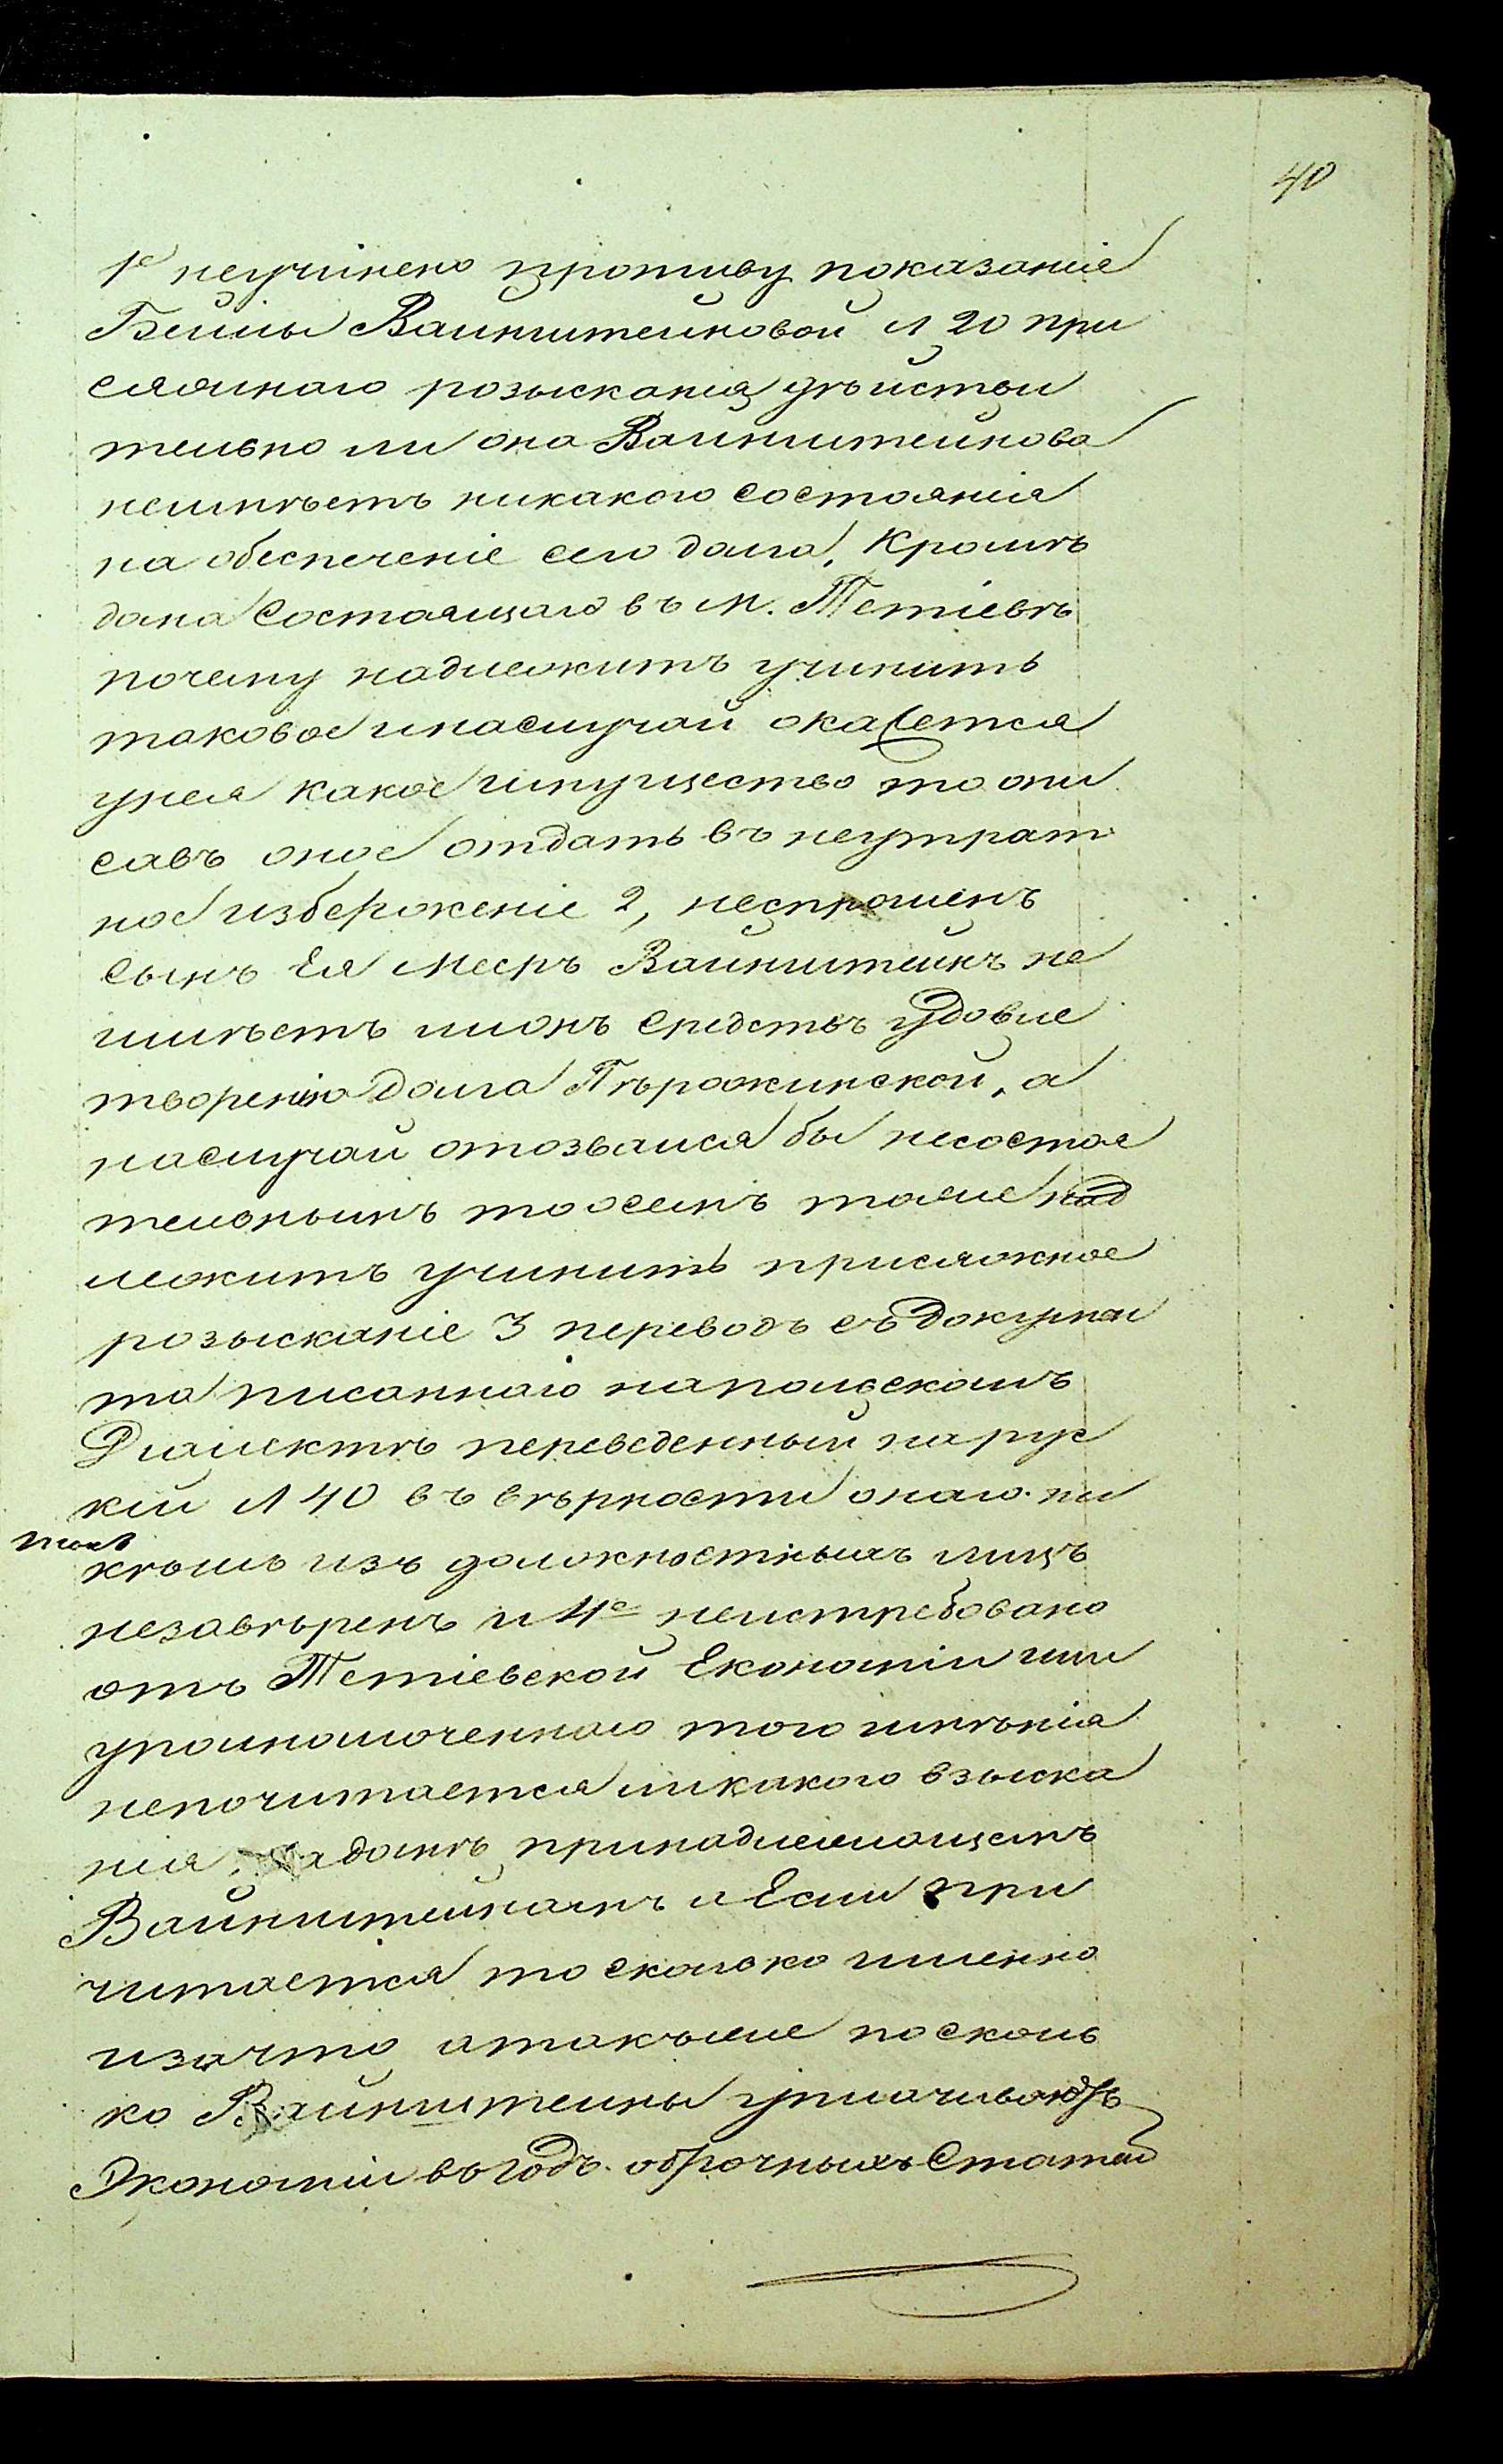 40
1е неучинено противу показание
Бейлы Вайнштейновой л 20 при
сяжнаго розысканія дѣйстви
тельно ли она Вайнштейнова
неимѣетъ никакого состоянія
на обеспеченіе сего долга, кромѣ
дома состоящаго въ м. Тетіевѣ
почему надлежитъ учинить
таковое инаслучай окажется
унея какое имущество то опи
савъ оное отдать въ неутрат
ное избереженіе 2, неспрошенъ
сынъ Ея Мееръ Вайнштейнъ не
имѣетъ лионъ средствъ удовле
творенію долга Пѣрожинской, а
наслучай отозвался бы несостоя
тельнымъ тоосемъ также над
лежитъ учинить присяжное
розысканіе 3 переводъ съ докумен
та писаннаго напольскомъ
Діалектѣ переведенный на рус
кій л 40 въ вѣрности онаго ни
кѣмъ изъ должностныхъ лицъ
незавѣренъ и 4е неистребовано
отъ Тетіевской Економіи или
уполномоченнаго того имѣнія
непочитается ли какого взыска
нія надомѣ принадлежащемъ
Вайнштейнамъ и Если при
читается то сколько именно
изачто атакъже посколь
ко Вайнштейны уплачиваютъ
Экономіи въ годъ оброчныхъ Статей